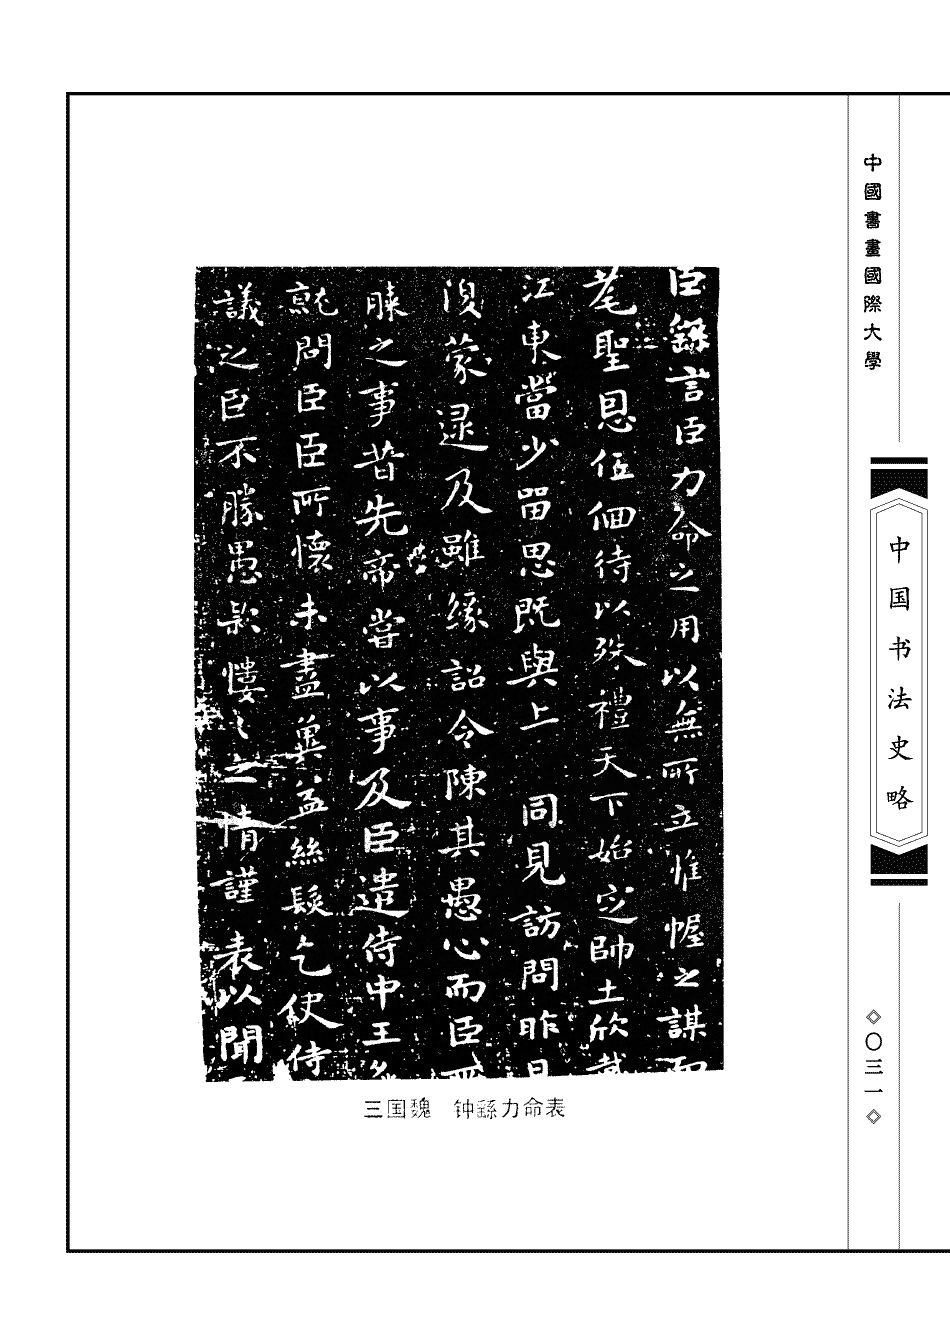 臣繇言臣力命之用以無所立惟幄之謀而
耄聖恩伍佪待以殊禮天下始定帥土欣戴
江東當少留思既與上 同見訪問昨日
復蒙逮及雖緣詔令陳其愚心而臣所
膝之事昔先帝嘗以事及臣遣侍中王
就問臣臣所懷未盡冀益絲髮乞使侍
議之臣不勝愚款慺之之情謹 表以聞
三国魏 钟繇力命表
中國書畫國際大學
中国书法史略
〇三一